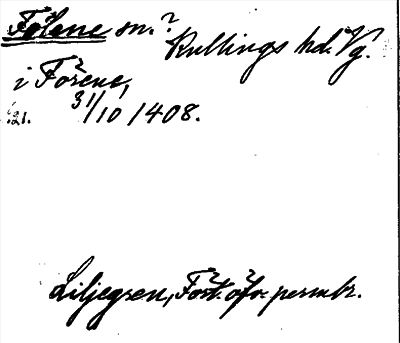 Fölene sn.?
Kullings hd. Vg.
i Förene,
31/10 1408.
Liljegren, Fört. öfv. permbr.